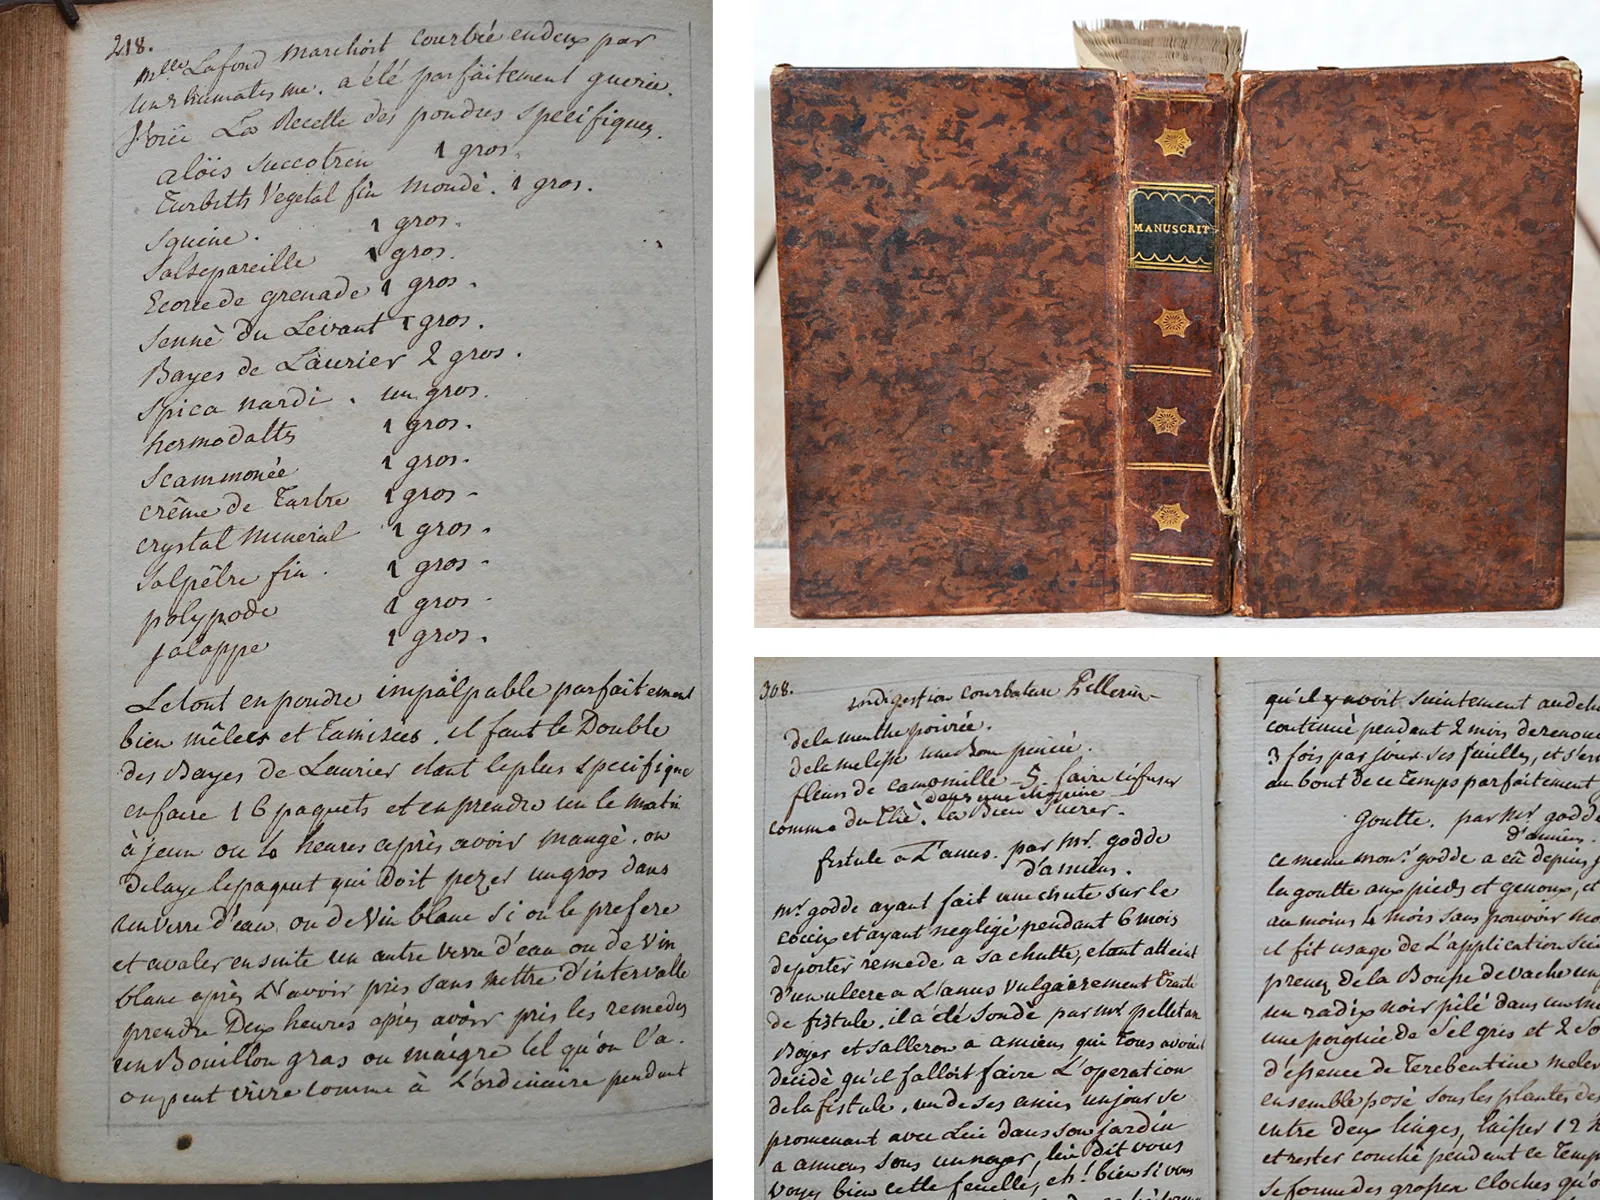 218.
mlle Lafond marchoit courbée en deux par
un rhumatisme. a été parfaitement guerie.
Voici La Recette des poudres specifiques.
aloës succotrin 1 gros.
Turbith Vegetal fin mondé. 1 gros.
Squine. 1 gros.
Salsepareille 1 gros.
Ecorce de grenade 1 gros.
Senné du Levant 1 gros.
Bayes de Laurier 2 gros.
Spica nardi. un gros.
hermodaltes 1 gros.
Scammonée 1 gros.
crême de Tartre 1 gros.
crystal mineral 1 gros.
Salpêtre fin. 1 gros.
polypode 1 gros.
jalappe 1 gros.
Le tout en poudre impalpable parfaitement
bien mêlees et Tamisees. il faut le Double
des Bayes de Laurier etant le plus specifique
en faire 16 paquets et en prendre un le matin
à jeun ou 4 heures après avoir mangé. on
delaye le paquet qui doit pezer un gros dans
un verre d'eau ou de vin blanc si on le prefere
et avaler ensuite un autre verre d'eau ou de vin
blanc après L'avoir pris sans mettre d'intervalle
prendre Deux heures après avoir pris les remedes
un Bouillon gras ou maigre tel qu'on l'a.
on peut vivre comme à L'ordinaire pendant
MANUSCRIT
308.
indigestion courbature Pellerin
de la menthe poivrée.
de la melisse une Bonne pincée.
fleurs de camomille 5. faire infuser
dans une chopine
comme du Thé. la Bien sucrer.
fistule a L'anus. par Mr. godde
d'amiens.
mr godde ayant fait une chute sur le
coccix et ayant negligé pendant 6 mois
de porter remede a sa chutte, etant atteint
d'un ulcere a L'anus vulgairement traité
de fistule. il a été sondé par mr pelletan
Boyer et Salleron a amiens qui tous avoient
decidé qu'il falloit faire L'operation
de la fistule. un de ses amis un jour se
promenant avec Lui dans son jardin
a amiens sous un noyer, lui dit vous
voyez bien cette feuille, eh! bien si vous
qu'il y avoit suintement au dehors
continué pendant 2 mois de renou
3 fois par jour ses feuilles, et s'est
au bout de ce temps parfaitement
Goutte. par mr godde
d'amiens.
ce meme monr. godde a eû depuis
la goutte aux pieds et genoux, et
au moins 4 mois sans pouvoir mo
il fit usage de L'application sui
prenez de la Bouse de vache un
un radix noir pilé dans un mo
une poignée de Sel gris et 2 So
d'essence de Terebentine meler
ensemble posé sous les plantes des
entre deux linges, laisser 12 h
et rester couché pendant ce Temps
se forme des grosses cloches qu'o